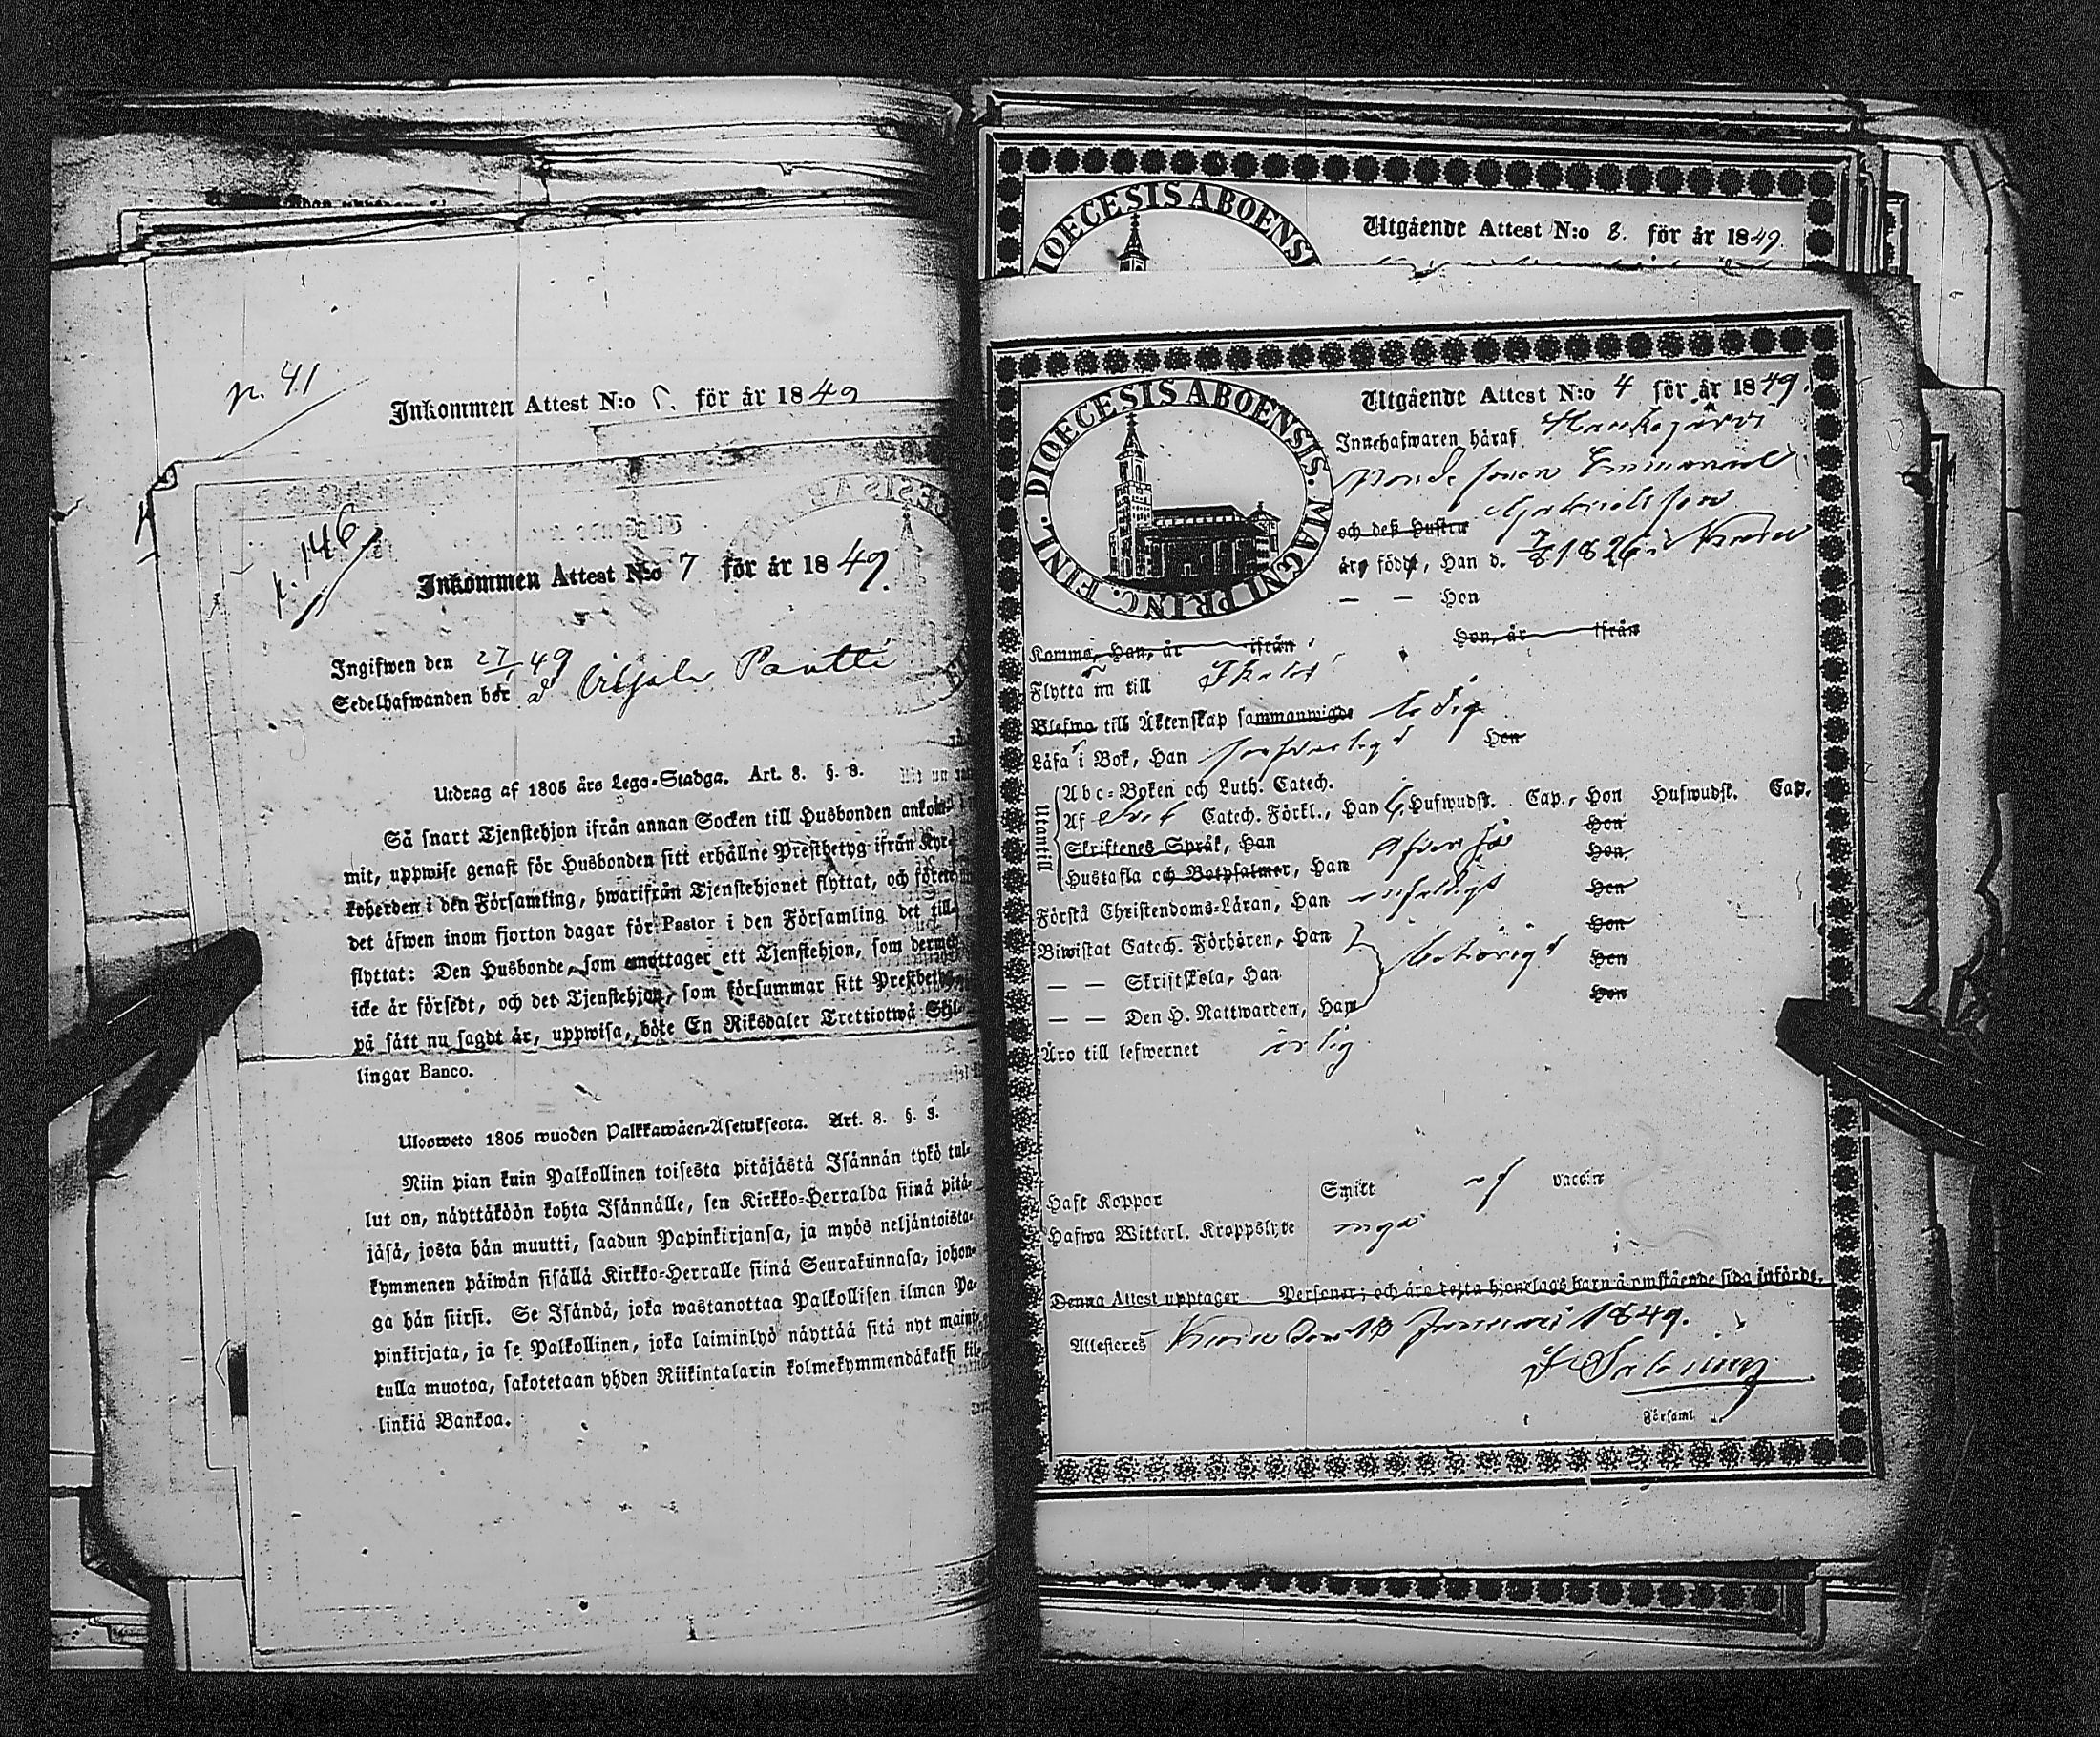 p. 41
Inkommen Attest N:o 5. för år 1849
p. 146
Inkommen Attest N:o 7 för år 1849.
Ingifwen den 27/1 49
Sedelhafwanden bor å Viljala Pantti
Utdrag af 1805 års Lego-Stadga. Art. 8. §. 3.
Så snart Tjenstehjon ifrån annan Socken till Husbonden ankom-
mit, uppwise genast för Husbonden sitt erhållne Prestbetyg ifrån Kyr-
koherden i den Församling, hwarifrån Tjenstehjonet flyttat, och förete
det äfwen inom fjorton dagar för Pastor i den Församling det till-
flyttat: Den Husbonde, som emottager ett Tjenstehjon, som dermed
icke är försedt, och det Tjenstehjon, som försummar sitt Prestbetyg,
på sätt nu sagdt är, uppwisa, böte En Riksdaler Trettiotwå Skil-
lingar Banco.
Ulosweto 1805 wuoden Palkkawäen-Asetuksesta. Art. 8. §. 3.
Niin pian kuin Palkollinen toisesta pitäjästä Isännän tykö tul-
lut on, näyttäköön kohta Isännälle, sen Kirkko-Herralda siinä pitä-
jäsä, josta hän muutti, saadun Papinkirjansa, ja myös neljäntoista-
kymmenen päiwän sisällä Kirkko-Herralle siinä Seurakunnasa, johon-
ga hän siirsi. Se Isändä, joka wastanottaa Palkollisen ilman Pa-
pinkirjata, ja se Palkollinen, joka laiminlyö näyttää sitä nyt maini-
tulla muotoa, sakotetaan yhden Riikintalarin kolmekymmendäkaksi kil-
linkiä Bankoa.
DIOECESIS ABOENSIS
Utgående Attest N:o 8. för år 1849.
DIOECESIS ABOENSIS. MAGNI PRINC. FINL.
Utgående Attest N:o 4 för år 1849.
Innehafwaren häraf
Bondesonen Emmanuel
och dess Hustru Gabrielsson
äro födde, Han d. 7/8 1826 i
— — Hon
Komma, Han, år ifrån Hon, år ifrån
Flytta nu till
Blefwo till Äktenskap sammanwigde ledig
Läsa i Bok, Han Hon
Utantill
Abc-Boken och Luth. Catech.
Af Catech. Förkl., Han Hufwudst. Cap., Hon Hufwudst. Cap.
Skriftenes Språk, Han Hon
Hustafla och Botpsalmer, Han Hon
Förstå Christendoms-Läran, Han Hon
Biwistat Catech. Förhören, Han Hon
— — Skriftskola, Han Hon
— — Den H. Nattwarden, Han Hon
Äro till lefwernet ärlig
Haft Koppor Smitt af vaccin
Hafwa Witterl. Kroppslyte
Denna Attest upptager Personer; och äro detta hjonelags barn å omstående sida införde.
Attesteres Januari 1849.
Församl.